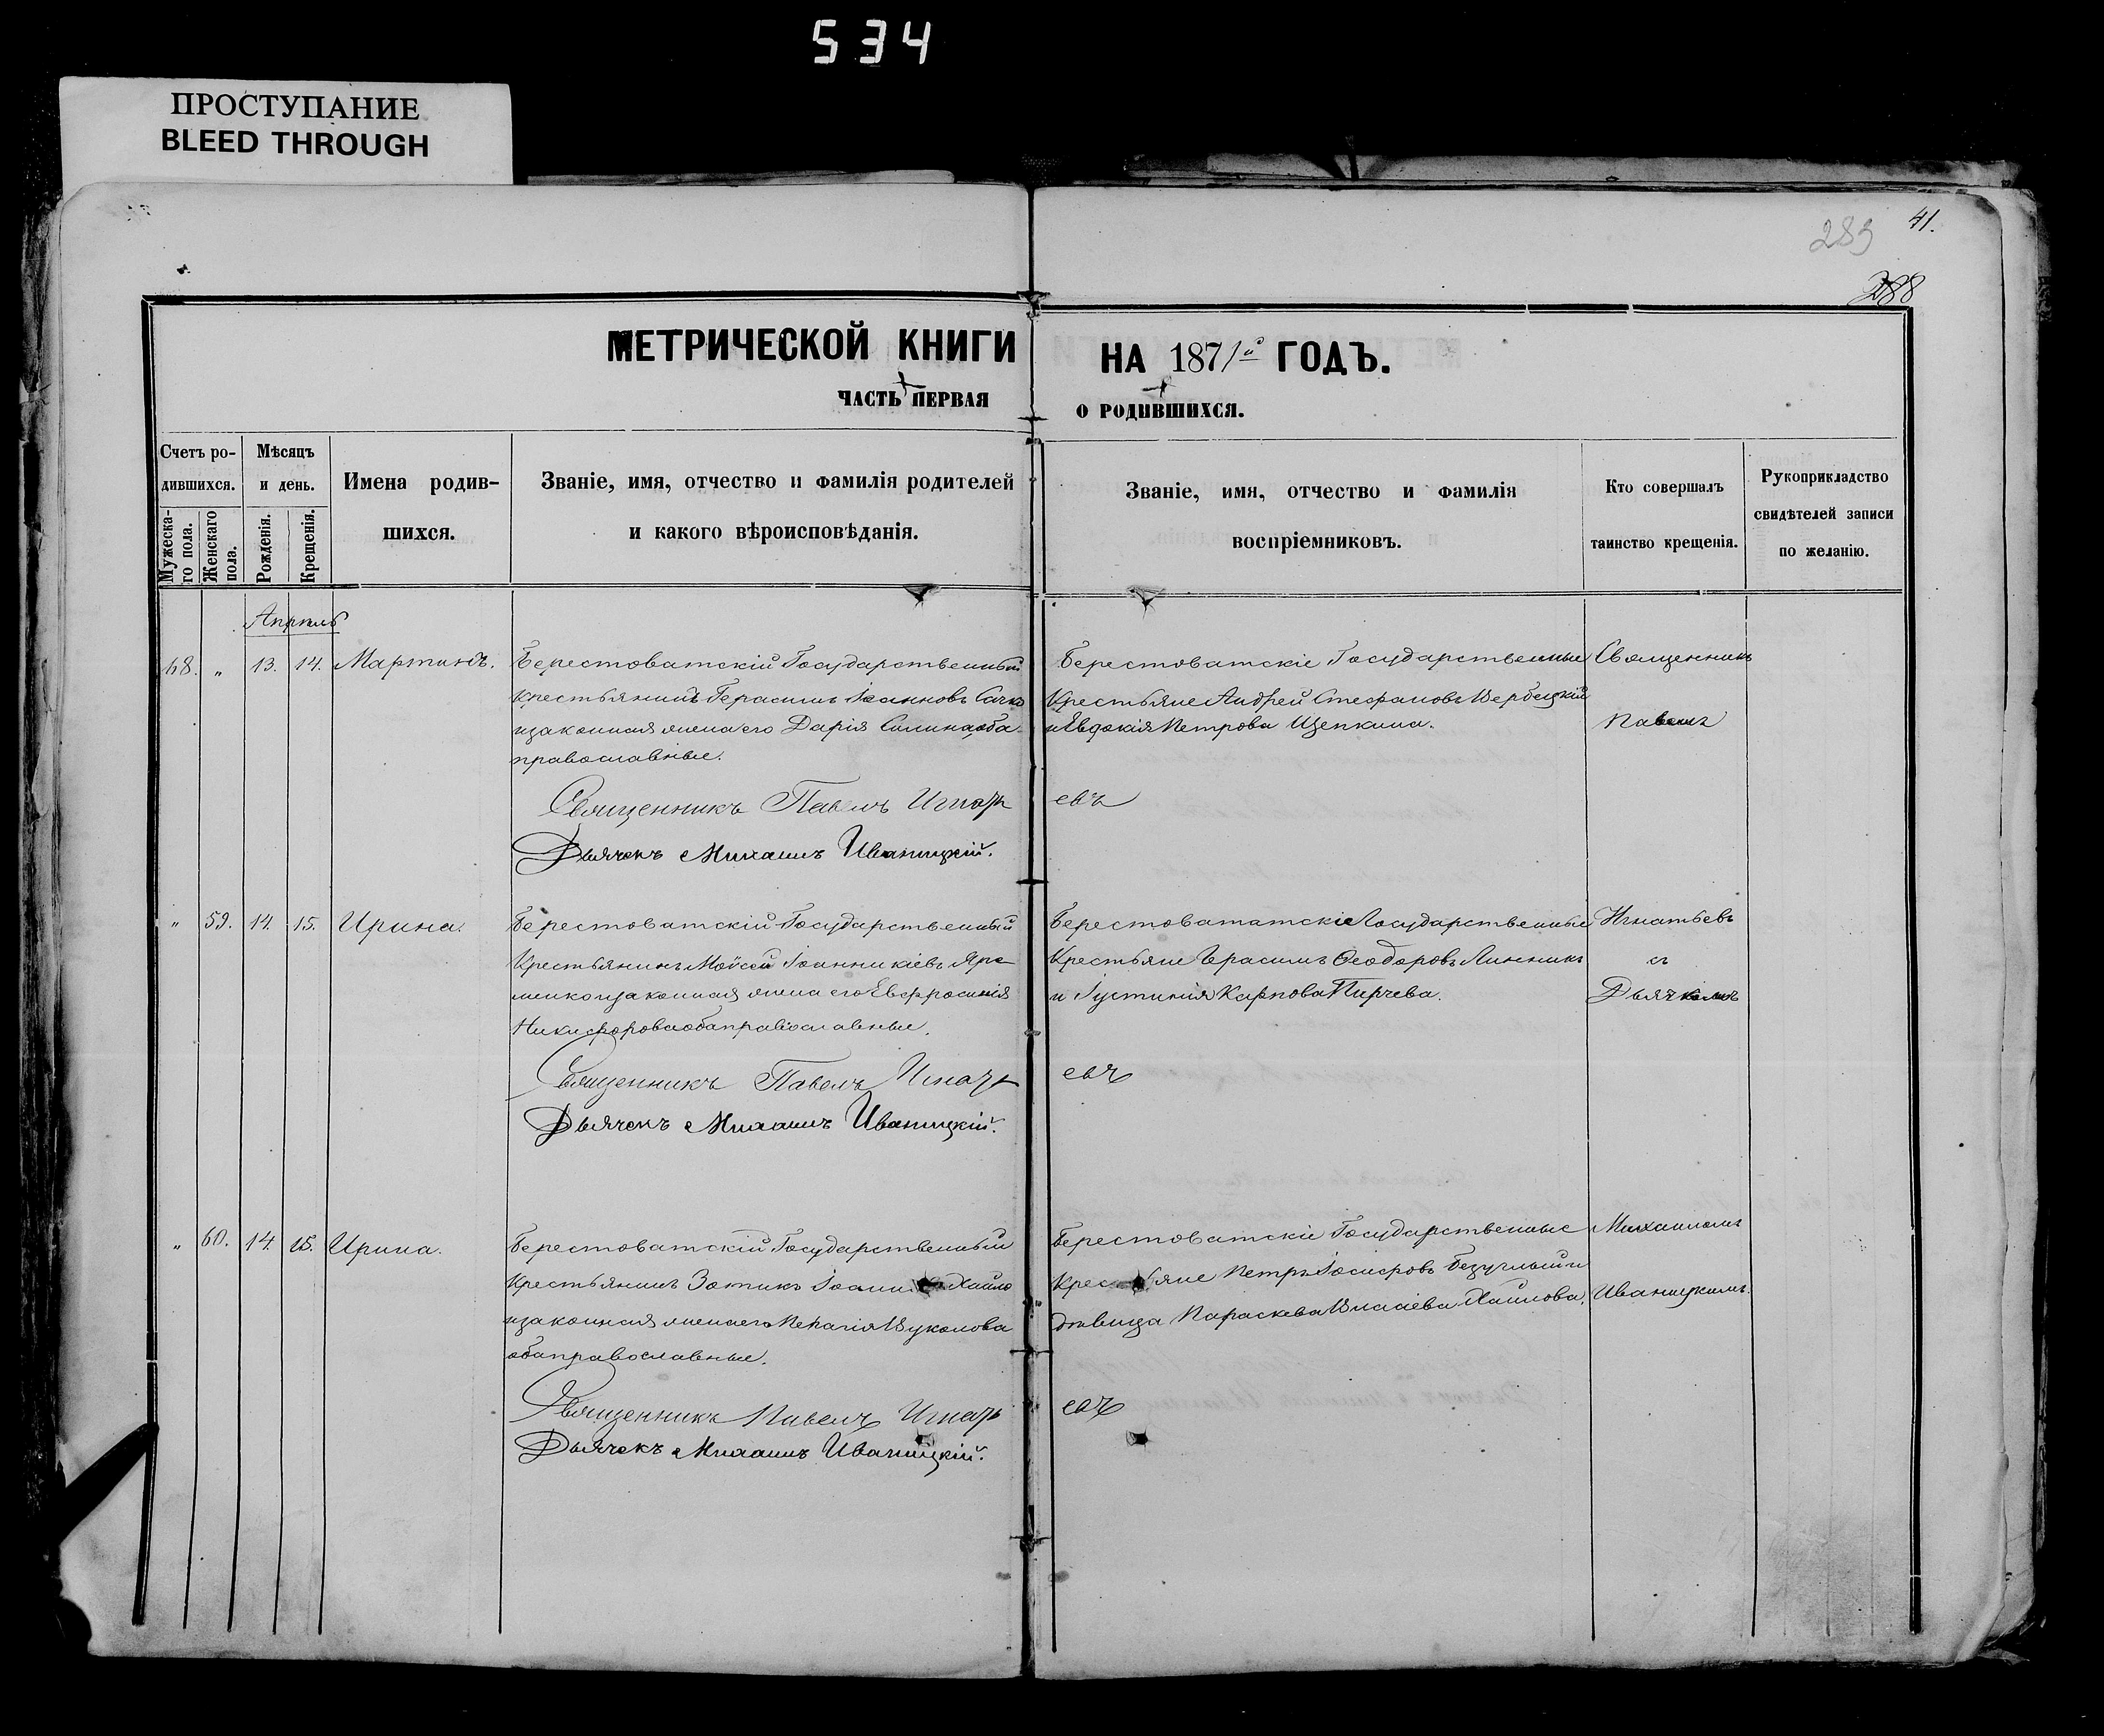 534
ПРОСТУПАНИЕ
BLEED THROUGH
41.
289
288
МЕТРИЧЕСКОЙ КНИГИ НА 1871й ГОДЪ.
ЧАСТЬ ПЕРВАЯ О РОДИВШИХСЯ.
Счетъ родившихся.
Мужескаго пола.
Женскаго пола.
Мѣсяцъ и день.
Рожденія.
Крещенія.
Имена родившихся.
Званіе, имя, отчество и фамилія родителей
и какого вѣроисповѣданія.
Званіе, имя, отчество и фамилія
воспріемниковъ.
Кто совершалъ
таинство крещенія.
Рукоприкладство
свидѣтелей записи
по желанію.
Апрѣль
68. „ 13. 14. Мартинъ.
Берестоватскій Государственный
Крестьянинъ Герасимъ Іоанновъ Сачко
изаконная жена его Дарія оба
православные.
Священникъ Павелъ Игнатьевъ
Дьячекъ Михаилъ Иваницкій.
Берестоватскіе Государственные
Крестьяне Андрей Стефановъ Вербецкій
и Евдокія Петрова Щепкина.
Священникъ
Павелъ
„ 59. 14. 15. Ирина.
Берестоватскій Государственный
Крестьянинъ Моѵсей Іоанникіевъ Яре-
менко изаконная жена его Евфросинія
Никифорова оба православные.
Священникъ Павелъ Игнатьевъ
Дьячекъ Михаилъ Иваницкій.
Берестovататскіе Государственные
Крестьяне Герасимъ Ѳеодоровъ Линникъ
и Іустинія Карпова Пирчева.
Игнатьевъ
съ
Дьячкомъ
„ 60. 14. 15. Ирина.
Берестоватскій Государственный
Крестьянинъ Зотикъ Хайло
изаконная жена его Вуколова
оба православные.
Священникъ Павелъ Игнатьевъ
Дьячекъ Михаилъ Иваницкій.
Берестоватскіе Государственные
Крестьяне Петръ Іосифовъ Безуглый и
дѣвица Параскева Власіева Хайлова.
Михаиломъ
Иваницкимъ.